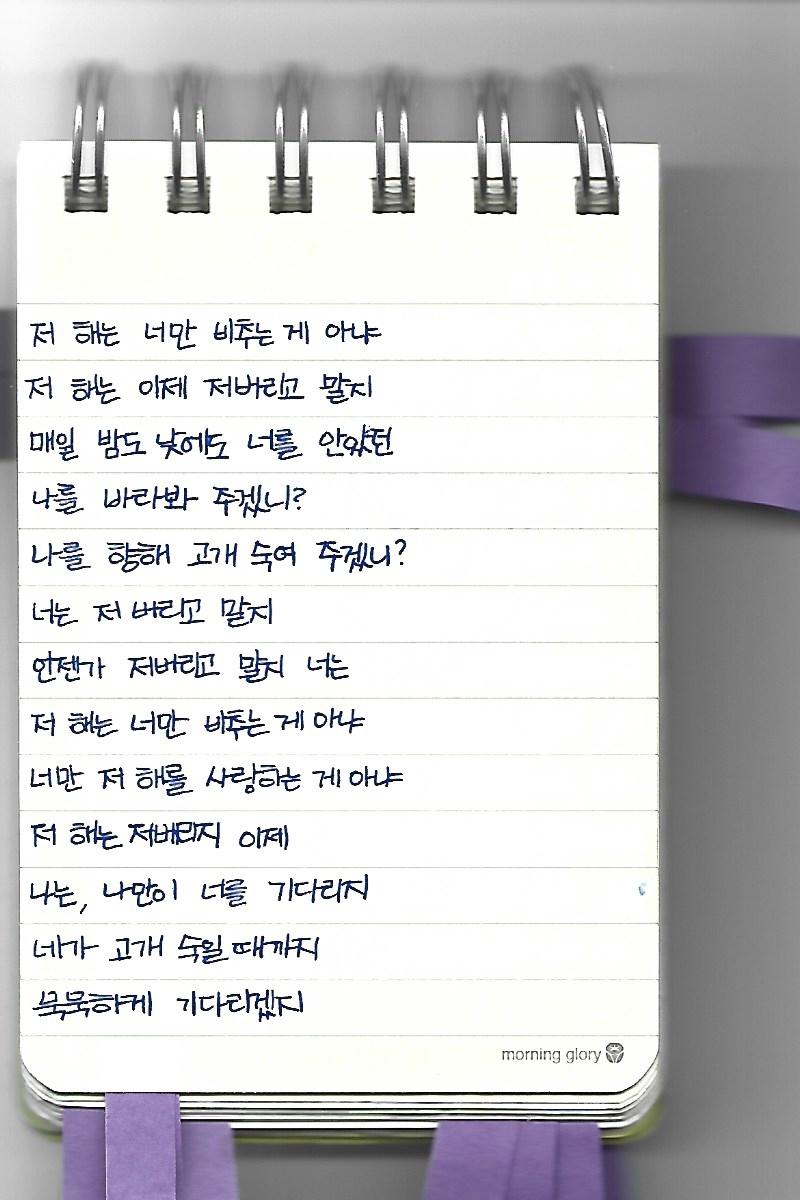 저 해는 너만 비추는 게 아냐
저 해는 이제 저버리고 말지
매일 밤도 낮에도 너를 안았던
나를 바라봐 주겠니?
나를 향해 고개 숙여 주겠니?
너는 저 버리고 말지
언젠가 저버리고 말지 너는
저 해는 너만 비추는 게 아냐
너만 저 해를 사랑하는 게 아냐
저 해는 저버리지 이제
나는, 나만이 너를 기다리지
네가 고개 숙일 때까지
묵묵하게 기다리겠지
morning glory